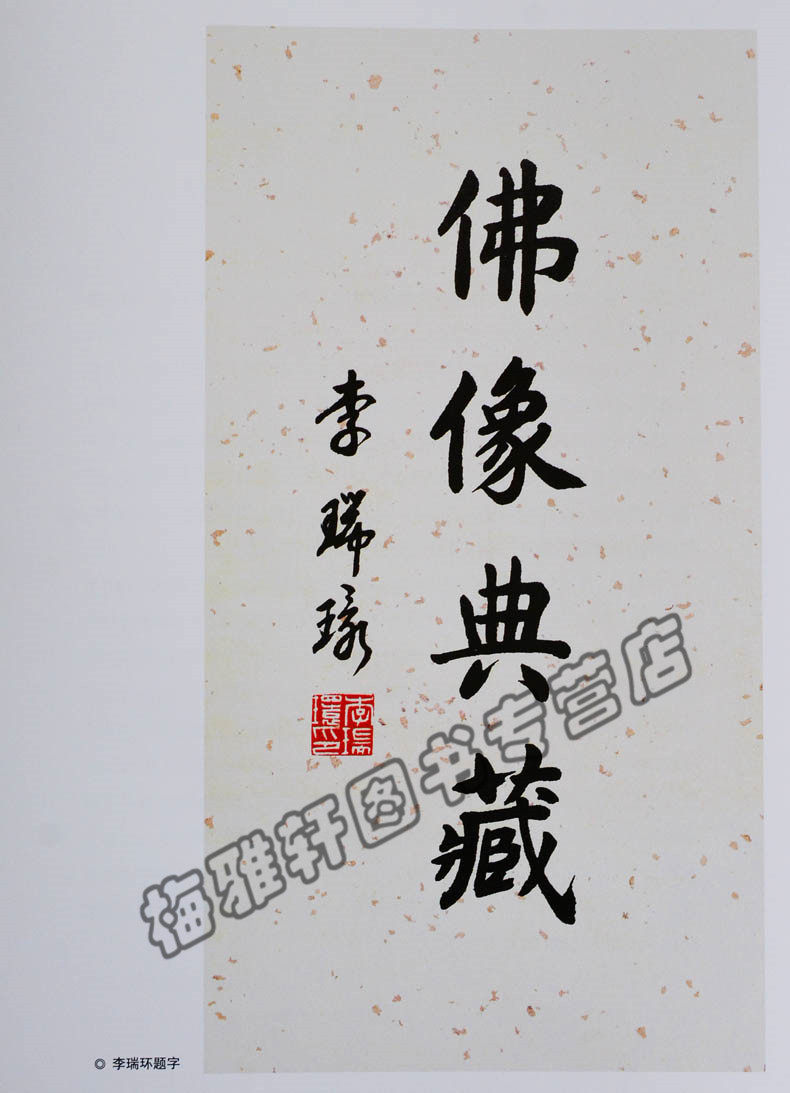 佛像典藏
李瑞环
李瑞環印
梅雅轩图书专营店
◎ 李瑞环题字